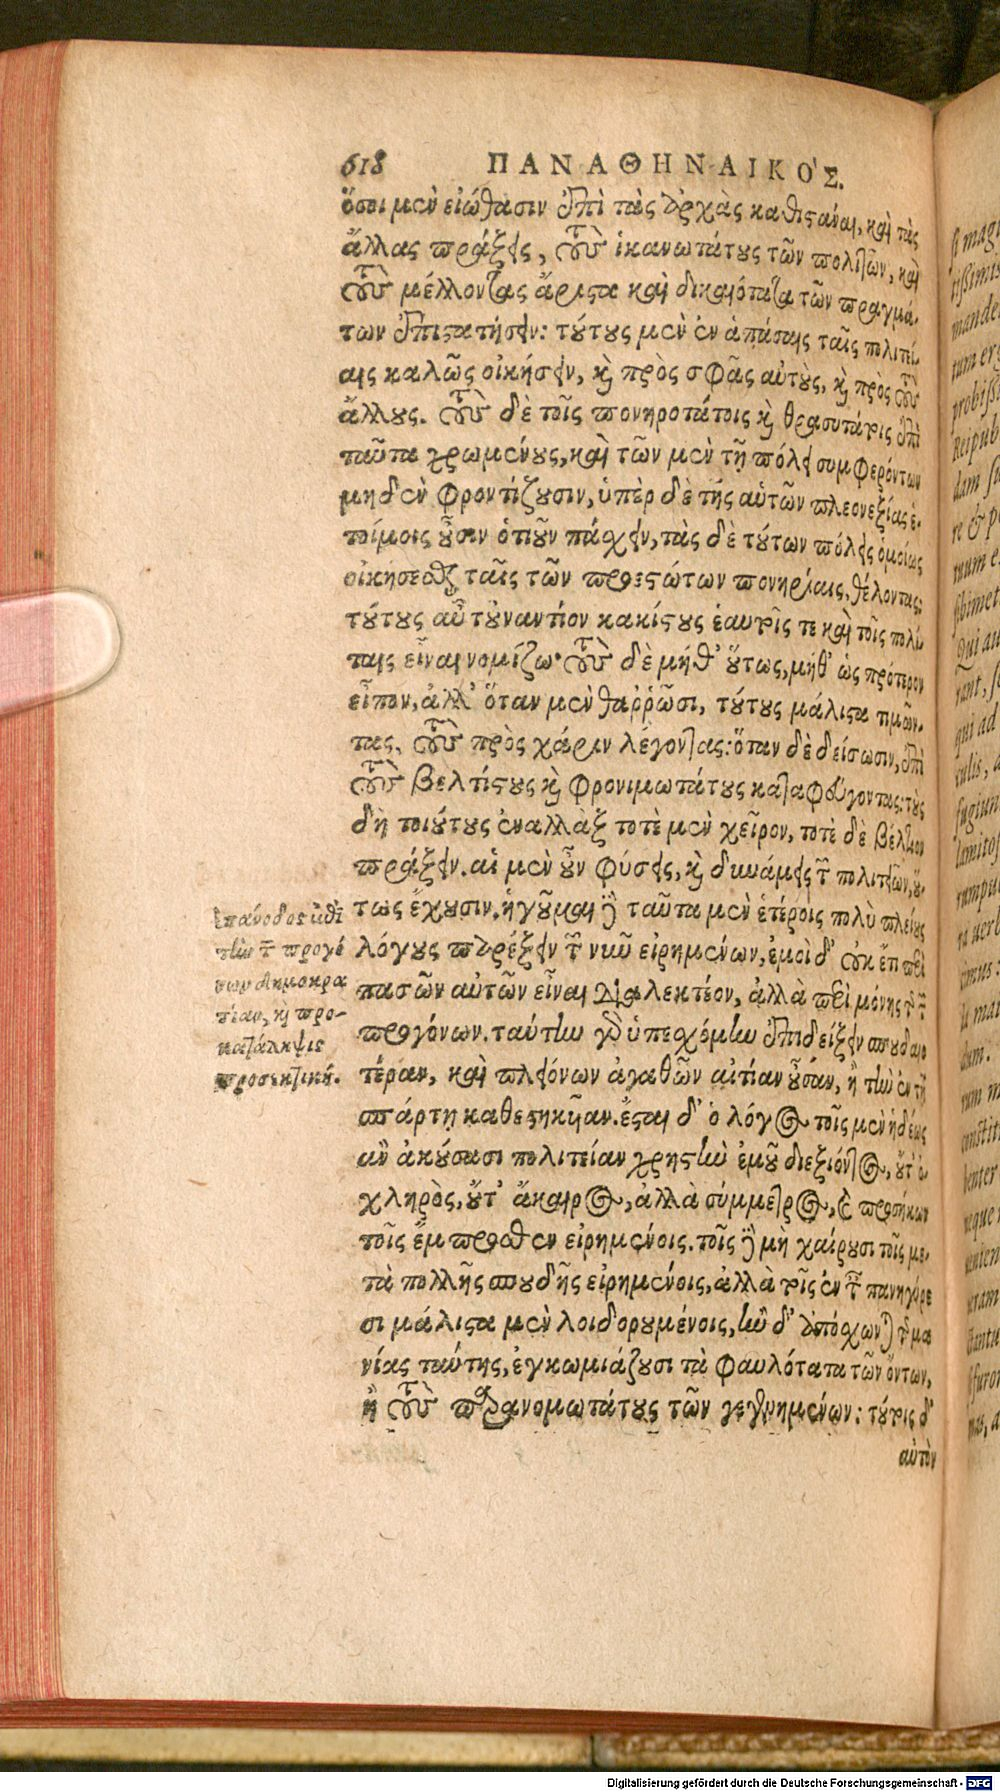 618 ΠΑΝΑΘΗΝΑΙΚΟ'Σ.
ὅσοι μὲν εἰώθασιν ἐπὶ τὰς ἀρχὰς καθιστάναι, καὶ τὰς
ἄλλας πράξεις, τοὺς ἱκανωτάτους τῶν πολιτῶν, καὶ
τοὺς μέλλοντας ἄριστα καὶ δικαιότατα τῶν πραγμά-
των ἐπιστατήσειν: τούτους μὲν ἐν ἁπάσαις ταῖς πολιτεί
αις καλῶς οἰκήσειν, καὶ πρὸς σφᾶς αὐτοὺς, καὶ πρὸς τοὺς
ἄλλους. τοὺς δὲ τοῖς πονηροτάτοις καὶ θρασυτάτοις ἐπὶ
ταῦτα χρωμένους, καὶ τῶν μὲν τῇ πόλει συμφερόντων
μηδὲν φροντίζουσιν, ὑπὲρ δὲ τῆς αὑτῶν πλεονεξίας ἑ-
τοίμοις οὖσιν ὁτιοῦν πάσχειν, τὰς δὲ τούτων πόλεις ὁμοίως
οἰκήσεσθαι ταῖς τῶν προεστώτων πονηρίαις. θέλοντας:
τούτους αὖ τοὐναντίον κακίστους ἑαυτοῖς τε καὶ τοῖς πολί
ταις εἶναι νομίζω· τοὺς δὲ μήθ' οὕτως, μήθ' ὡς πρότερον
εἶπον, ἀλλ' ὅταν μὲν θαῤῥῶσι, τούτους μάλιστα τιμῶν-
τας, τοὺς πρὸς χάριν λέγοντας: ὅταν δὲ δείσωσιν, ἐπὶ
τοὺς βελτίστους καὶ φρονιμωτάτους καταφεύγοντας: τοὺς
δὴ τοιούτους ἐναλλὰξ τοτὲ μὲν χεῖρον, τοτὲ δὲ βέλτιον
πράξειν. αἱ μὲν οὖν φύσεις, καὶ δυνάμεις τῶν πολιτειῶν, οὕ-
τως ἔχουσιν. ἡγοῦμαι δὲ ταῦτα μὲν ἑτέροις πολὺ πλείους
λόγους παρέξειν τῶν νῦν εἰρημένων, ἐμοὶ δ' οὐκ ἔτι περὶ
πασῶν αὐτῶν εἶναι διαλεκτέον, ἀλλὰ περὶ μόνης τῆς τῶν
προγόνων. ταύτην γὰρ ὑπεσχόμην ἐπιδείξειν σπουδαιο
τέραν, καὶ πλειόνων ἀγαθῶν αἰτίαν οὖσαν, ἢ τὴν ἐν τῇ
σπάρτῃ καθεστηκυῖαν. ἔσται δ' ὁ λόγος τοῖς μὲν ἡδέως
ἂν ἀκούσασι πολιτείαν χρηστὴν ἐμοῦ διεξιόντος, οὔτ' ὀ-
χληρὸς, οὔτ' ἄκαιρος, ἀλλὰ σύμμετρος, καὶ προσήκων
τοῖς ἔμπροσθεν εἰρημένοις. τοῖς δὲ μὴ χαίρουσι τοῖς με-
τὰ πολλῆς σπουδῆς εἰρημένοις, ἀλλὰ τοῖς ἐν ταῖς πανηγύρε
σι μάλιστα μὲν λοιδορουμένοις, ἢν δ' ἀπόσχωνται τῆς μα
νίας ταύτης, ἐγκωμιάζουσι τὰ φαυλότατα τῶν ὄντων,
ἢ τοὺς παρανομωτάτους τῶν γεγενημένων: τούτοις δ'
αὐτὸν
ἐπάνοδος
τὴν τῶν προγό
νων δημοκρα
τίαν, καὶ προ-
κατάληψις
προσεκτική.
Digitalisierung gefördert durch die Deutsche Forschungsgemeinschaft - DFG